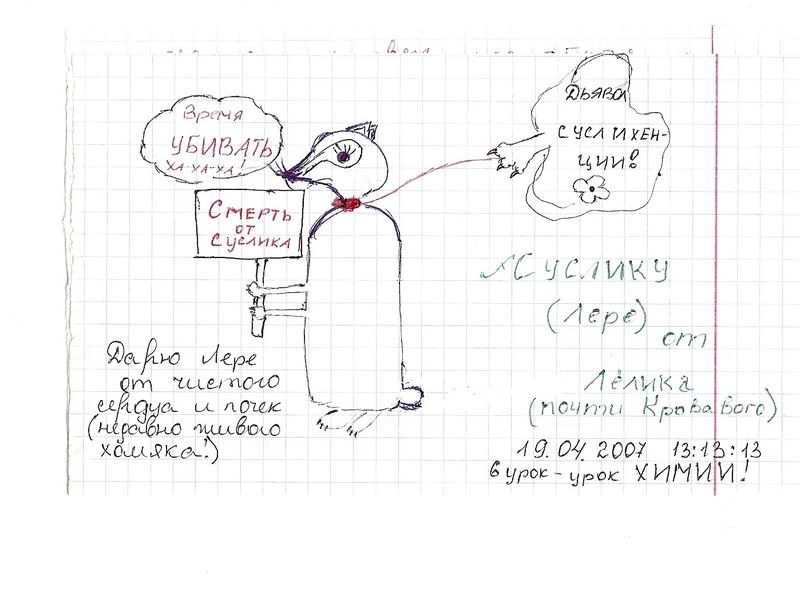 Время
УБИВАТЬ
ХА-ХА-ХА!
Смерть
от
Суслика
Дьявол
СУСЛИХЕН-
ЦИИ!
СУСЛИКУ
(Лере)
от
Лёлика
(почти Кровавого)
Дарю Лере
от чистого
сердца и почек
(неравно живого
хомяка!)
19.04.2007 13:13:13
в урок-урок ХИМИИ!